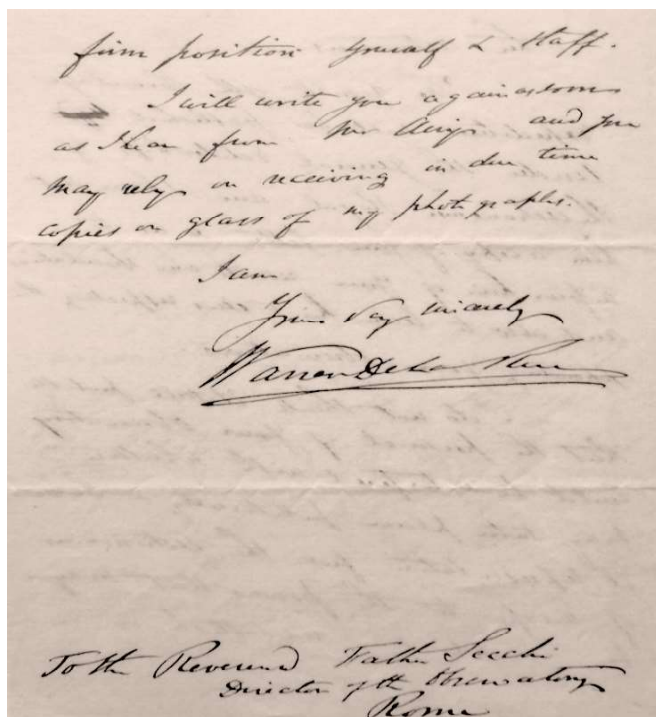 firm position yourself & staff.
I will write you again as soon
as I hear from Mr Airy and you
may rely on receiving in due time
copies on glass of my photographs.
I am
Yours Very sincerely
Warren De la Rue
To the Reverend Father Secchi
Director of the Observatory
Rome